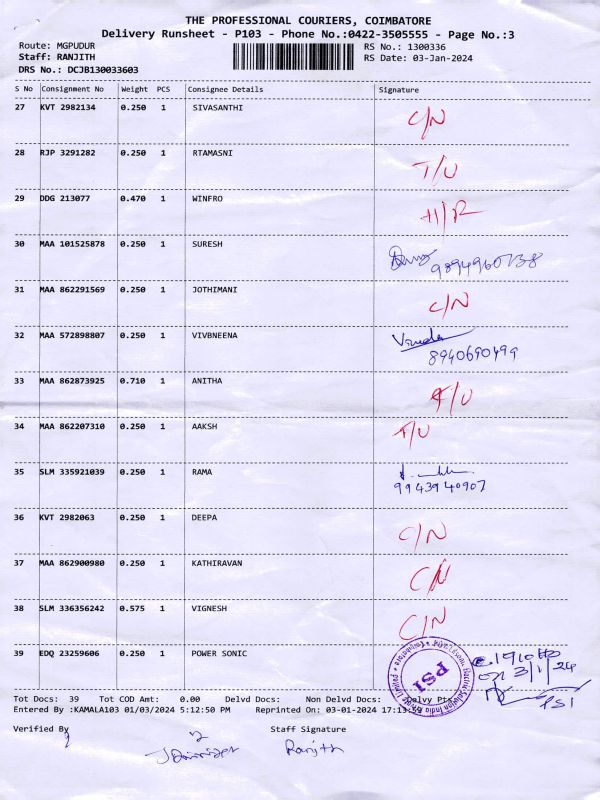 THE PROFESSIONAL COURIERS, COIMBATORE
Delivery Runsheet - P103 - Phone No.:0422-3505555 - Page No.:3
Route: MGPUDUR RS No.: 1300336
Staff: RANJITH RS Date: 03-Jan-2024
DRS No.: DCJB130033603
S No Consignment No Weight PCS Consignee Details Signature
27 KVT 2982134 0.250 1 SIVASANTHI C/N
28 RJP 3291282 0.250 1 RTAMASNI T/U
29 DDG 213077 0.470 1 WINFRO H/R
30 MAA 101525878 0.250 1 SURESH
31 MAA 862291569 0.250 1 JOTHIMANI C/N
32 MAA 572898807 0.250 1 VIVBNEENA
8940690499
33 MAA 862873925 0.710 1 ANITHA T/U
34 MAA 862207310 0.250 1 AAKSH T/U
35 SLM 335921039 0.250 1 RAMA
9943940907
36 KVT 2982063 0.250 1 DEEPA C/N
37 MAA 862900980 0.250 1 KATHIRAVAN C/N
38 SLM 336356242 0.575 1 VIGNESH C/N
39 EDQ 23259606 0.250 1 POWER SONIC PSI 3/1/24
PSI
Tot Docs: 39 Tot COD Amt: 0.00 Delvd Docs: Non Delvd Docs:
Entered By :KAMALA103 01/03/2024 5:12:50 PM Reprinted On: 03-01-2024
Verified By Staff Signature
Ranjith